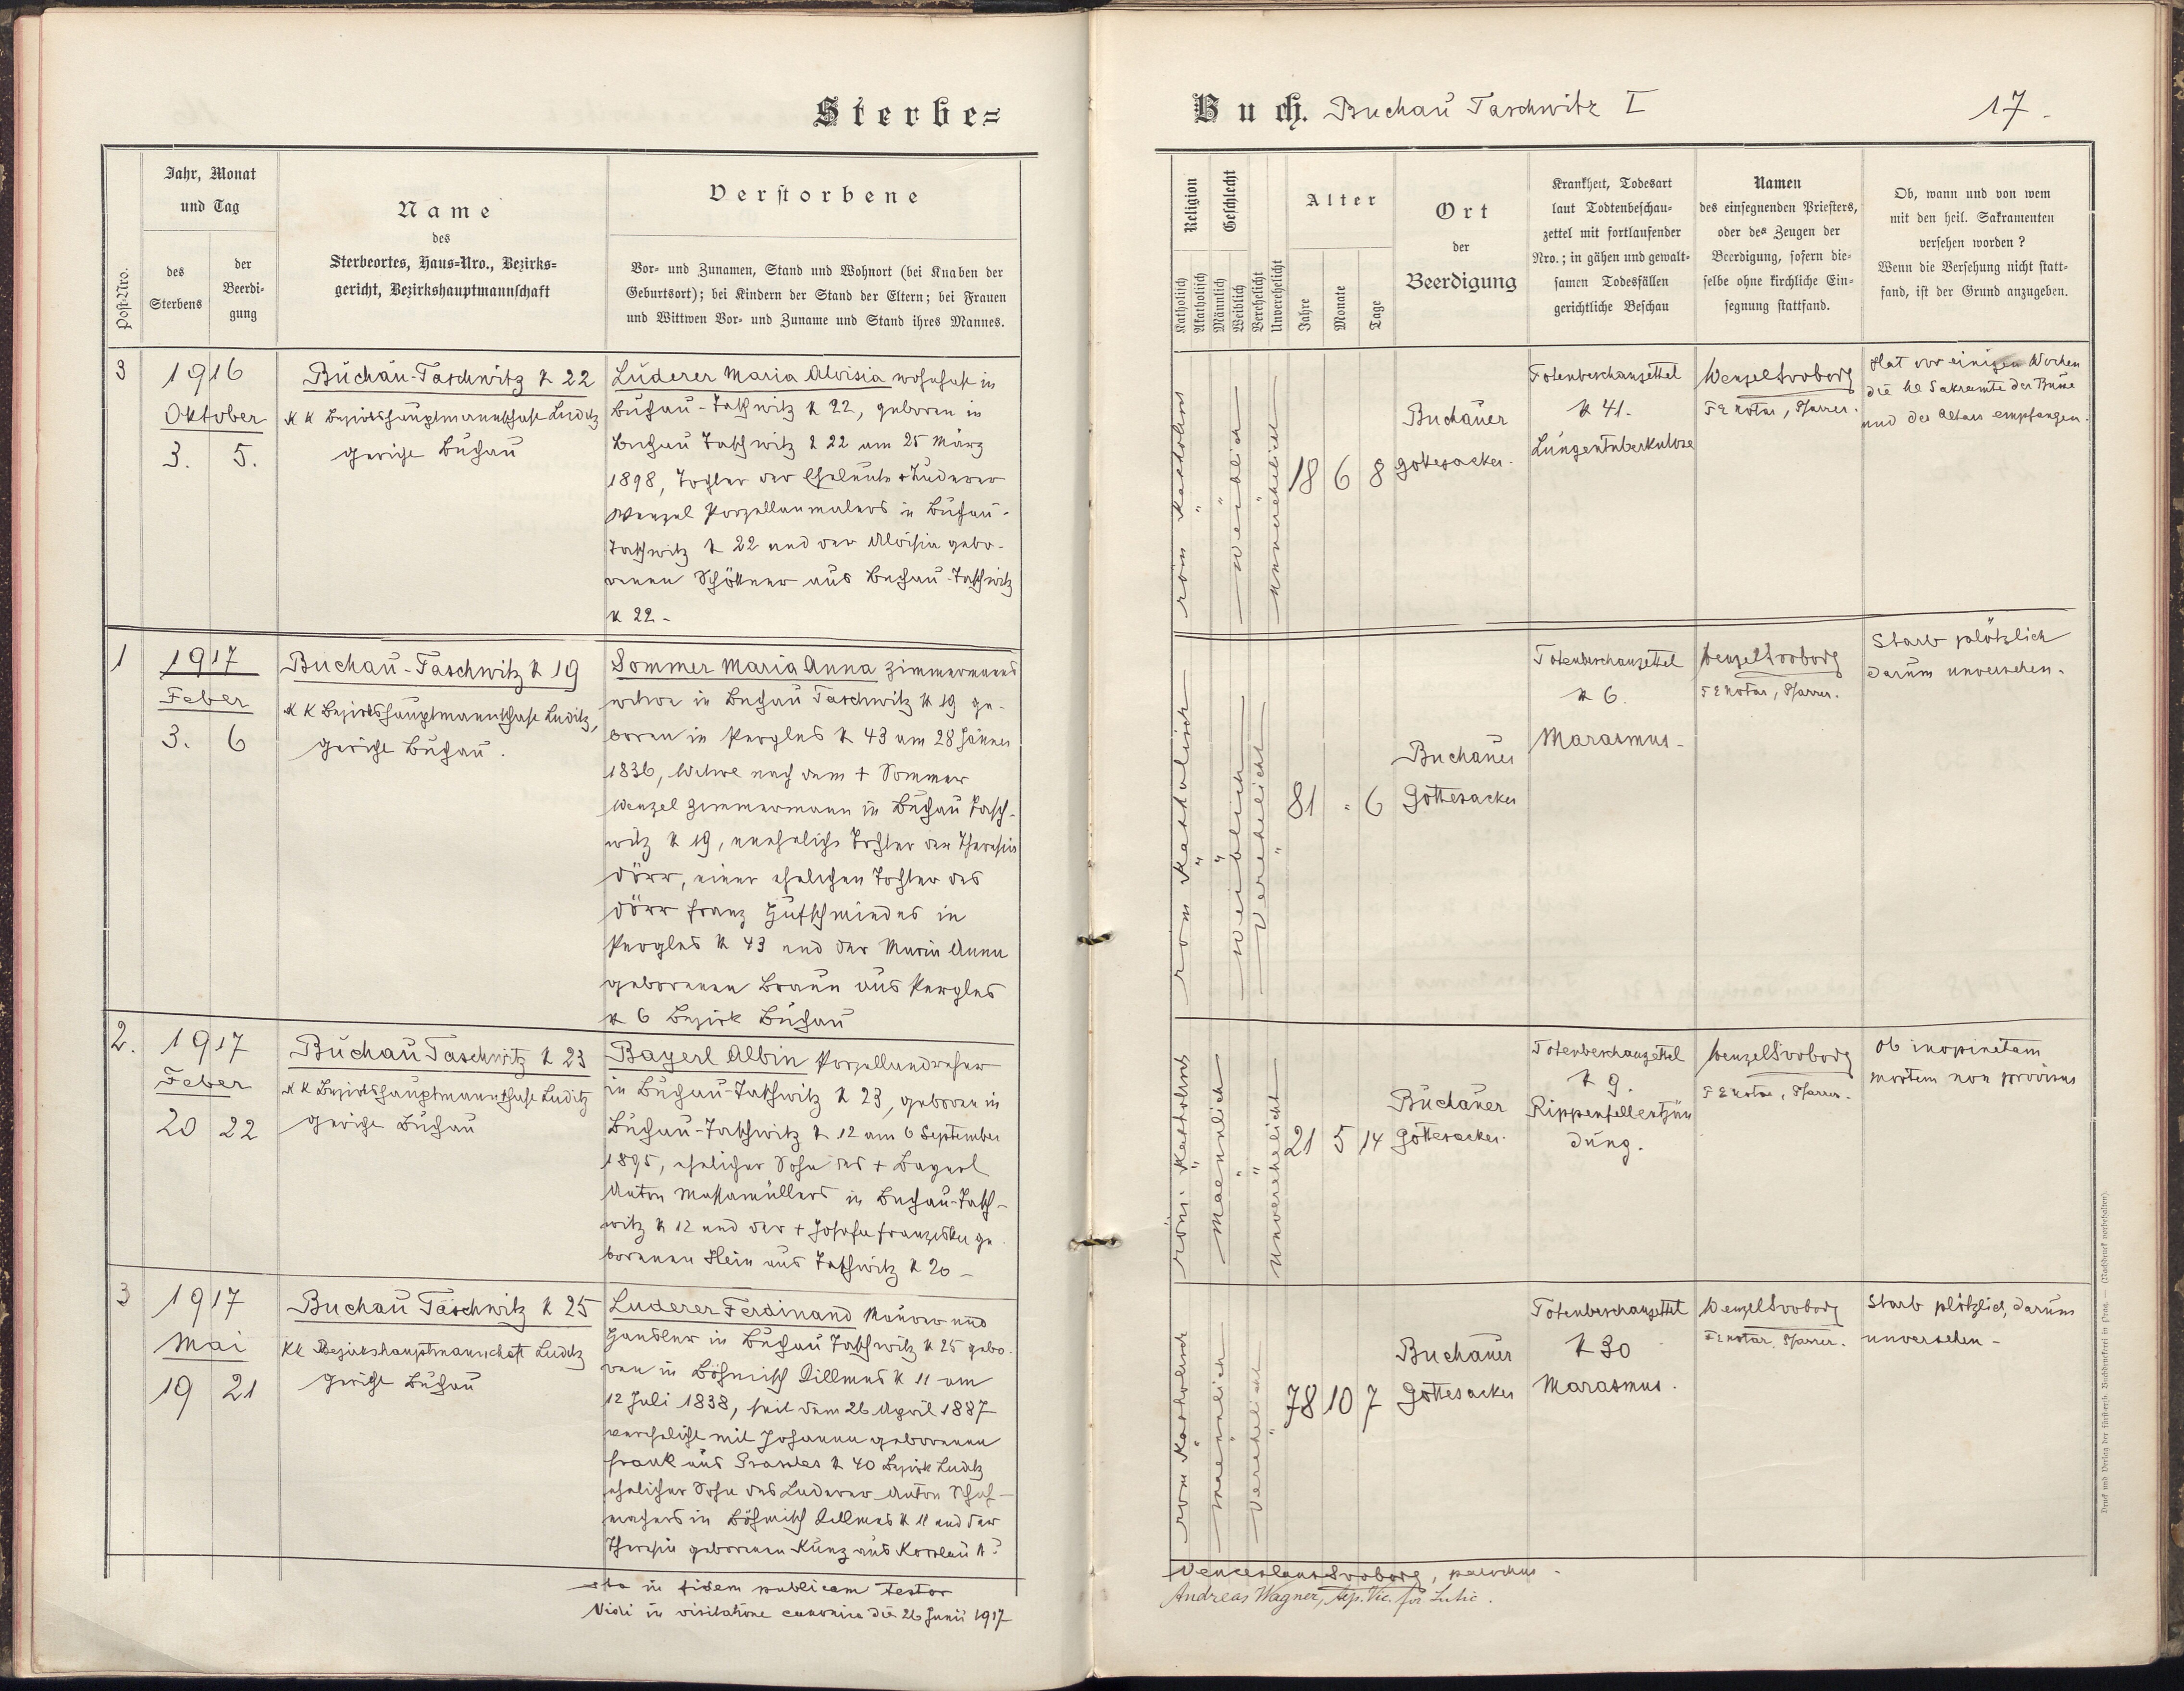 Sterbe=
Buch. Buchau Taschwitz I
17
Post-Nro.
Jahr, Monat
und Tag
des
Sterbens
der
Beerdi=
gung
Name
des
Sterbeortes, Haus=Nro., Bezirks=
gericht, Bezirkshauptmannschaft
Verstorbene
Vor= und Zunamen, Stand und Wohnort (bei Knaben der
Geburtsort); bei Kindern der Stand der Eltern; bei Frauen
und Wittwen Vor= und Zuname und Stand ihres Mannes.
Religion
Katholisch
Akatholisch
Geschlecht
Männlich
Weiblich
Verehelicht
Unverehelicht
Alter
Jahre
Monate
Tage
Ort
der
Beerdigung
Krankheit, Todesart
laut Todtenbeschau=
zettel mit fortlaufender
Nro.; in gähen und gewalt=
samen Todesfällen
gerichtliche Beschau
Namen
des einsegnenden Priesters,
oder des Zeugen der
Beerdigung, sofern die=
selbe ohne kirchliche Ein=
segnung stattfand.
Ob, wann und von wem
mit den heil. Sakramenten
versehen worden?
Wenn die Versehung nicht statt=
fand, ist der Grund anzugeben.
3
1916
Oktober
3. 5.
Buchau-Taschwitz N 22
K K Bezirkshauptmannschaft Luditz
Gericht Buchau
Luderer Maria Aloisia wohnhaft in
Buchau-Taschwitz N 22, geboren in
Buchau Taschwitz N 22 am 25 März
1898, Tochter der Eheleute Luderer
Wenzel Porzellanmalers in Buchau-
Taschwitz N 22 und der Aloisia gebo-
renen Schöttner aus Buchau-Taschwitz
N 22 -
röm katholisch
weiblich
unverehelicht
18 6 8
Buchauer
Gottesacker.
Totenbeschauzettel
N 41.
Lungentuberkulose
Wenzel Svoboda
Pfarrer.
Hat vor einigen Wochen
die hl Sakramte der Busse
und des Altars empfangen.
1
1917
Feber
3. 6
Buchau-Taschwitz N 19
K K Bezirkshauptmannschaft Luditz,
Gericht Buchau.
Sommer Maria Anna Zimmermanns
witwe in Buchau Taschwitz N 19 ge-
boren in Pergles N 43 am 28 Jänner
1836, Witwe nach dem + Sommer
Wenzel Zimmermann in Buchau Tasch-
witz N 19, uneheliche Tochter der Theresia
Dörr, einer ehelichen Tochter des
Dörr Franz Hufschmiedes in
Pergles N 43 und der Maria Anna
geborenen Braun aus Pergles
N 6 Bezirk Buchau
röm katholisch
weiblich
verehelicht
81 - 6
Buchauer
Gottesacker
Totenbeschauzettel
N 6.
Marasmus -
Wenzel Svoboda
Pfarrer.
Starb plötzlich
darum unversehen.
2.
1917
Feber
20 22
Buchau Taschwitz N 23
K K Bezirkshauptmannschaft Luditz
Gericht Buchau
Bayerl Albin Porzellandreher
in Buchau-Taschwitz N 23, geboren in
Buchau-Taschwitz N 12 am 6 September
1895, ehelicher Sohn des + Bayerl
Anton Massamüllers in Buchau-Tasch-
witz N 12 und der + Josefa Franziska ge
borenen Hein aus Taschwitz N 20 -
röm. katholisch
maennlich
unverehelicht
21 5 14
Buchauer
Gottesacker.
Totenbeschauzettel
N 9.
Rippenfellentzün
dung.
Wenzel Svoboda
Pfarrer.
Ob inopinatam
mortem non provisus
3
1917
Mai
19 21
Buchau Taschwitz N 25
KK Bezirkshauptmannschaft Luditz
Gericht Buchau
Luderer Ferdinand Maurer und
Händler in Buchau Taschwitz N 25 gebo-
ren in Böhmisch Killmes N 11 am
12 Juli 1838, seit dem 26 April 1887
verehelicht mit Johanna geborenen
Frank aus N 40 Bezirk Luditz
ehelicher Sohn des Luderer Anton Schuh-
machers in Böhmisch Killmes N 11 und der
Theresia geborenen Kunz aus N ?
röm katholisch
maennlich
verehelicht
78 10 7
Buchauer
Gottesacker
Totenbeschauzettel
N 30
Marasmus.
Wenzel Svoboda
Pfarrer.
Starb plötzlich, darum
unversehen -
Ita in fidem publicam testor
Venceslaus Svoboda, parochus.
Vidi in visitatione canonica die 26 Junii 1917
Andreas Wagner, Vic. for.
Druck und Verlag der fürsterzb. Buchdruckerei in Prag. — (Nachdruck vorbehalten).